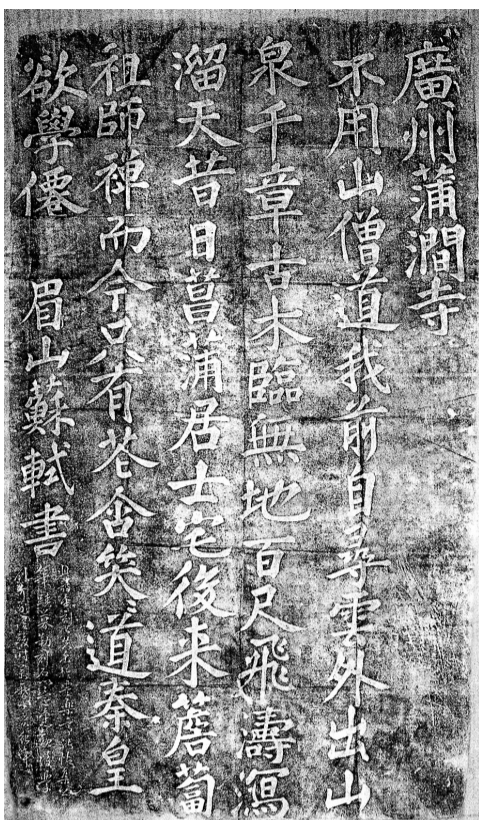 廣州蒲澗寺
不用山僧道我前自尋雲外出山
泉千章古木臨無地百尺飛濤瀉
溜天昔日菖蒲居士宅後来薝蔔
祖師禅而今只有花含笑〻道秦皇
欲學僊 眉山蘇軾書